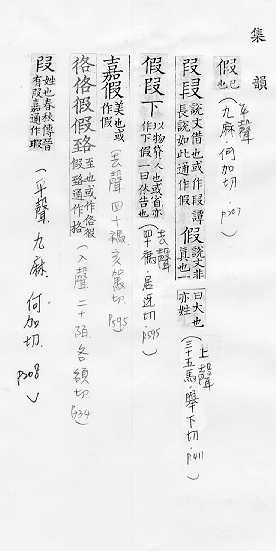 集韻
假 已也 (平聲 九麻 何加切. P207)
叚叚 說文借也或作叚譚長說如此通作假 假 說文非真也一曰大也亦姓 (上聲 三十五馬. 舉下切. P411)
假叚下 以物貸人也或省亦作下假一曰休告也 (去聲 四十禡. 居迓切. P595)
嘉假 美也或作假 (去聲 四十禡 亥駕切. P595)
狢佫徦假 至也或作佫徦假通作格 (入聲 二十陌. 各額切. P734)
叚 姓也春秋傳晉有叚嘉通作瑕 (平聲 九麻. 何加切. P208)